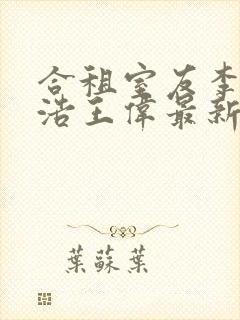 合租室友李
浩王偉最新
葉蘇葉